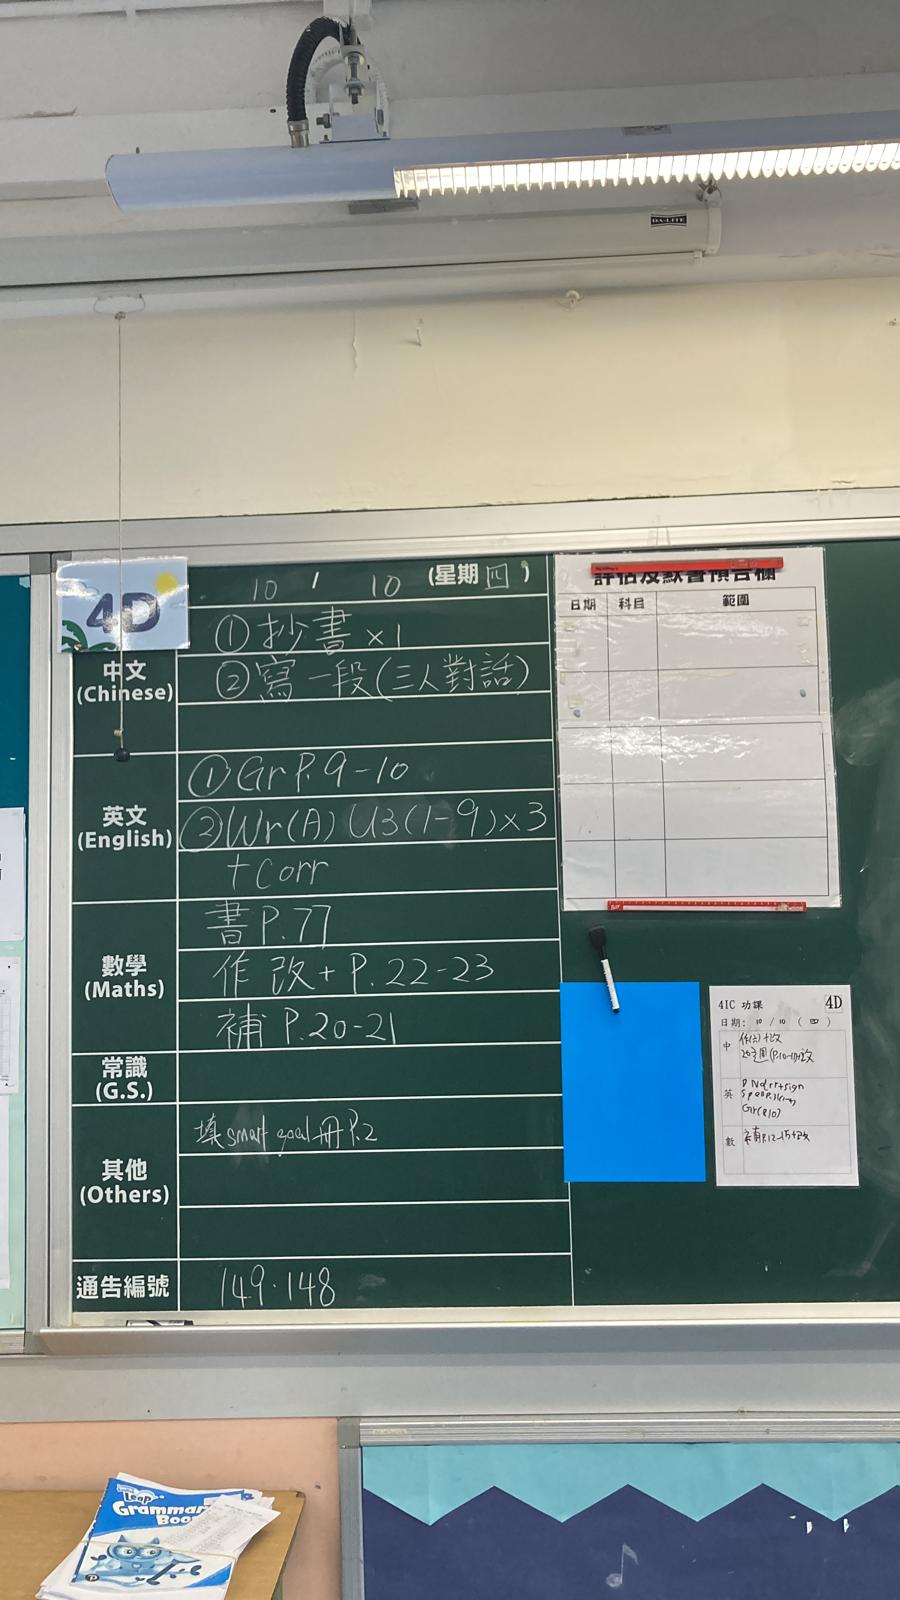 DA-LITE
4D
10 / 10 (星期四)
中文
(Chinese)
①抄書×1
②寫一段(三人對話)
英文
(English)
①Gr P.9-10
②Wr(A) U3(1-9)×3
+Corr
數學
(Maths)
書 P.77
作 改+P.22-23
補 P.20-21
常識
(G.S.)
其他
(Others)
填 smart goal 冊 P.2
通告編號
149.148
評估及默書預告欄
日期 科目 範圍
4IC 功課 4D
日期: 10 / 10 (四)
中
英
數
Leap
Grammar
Book